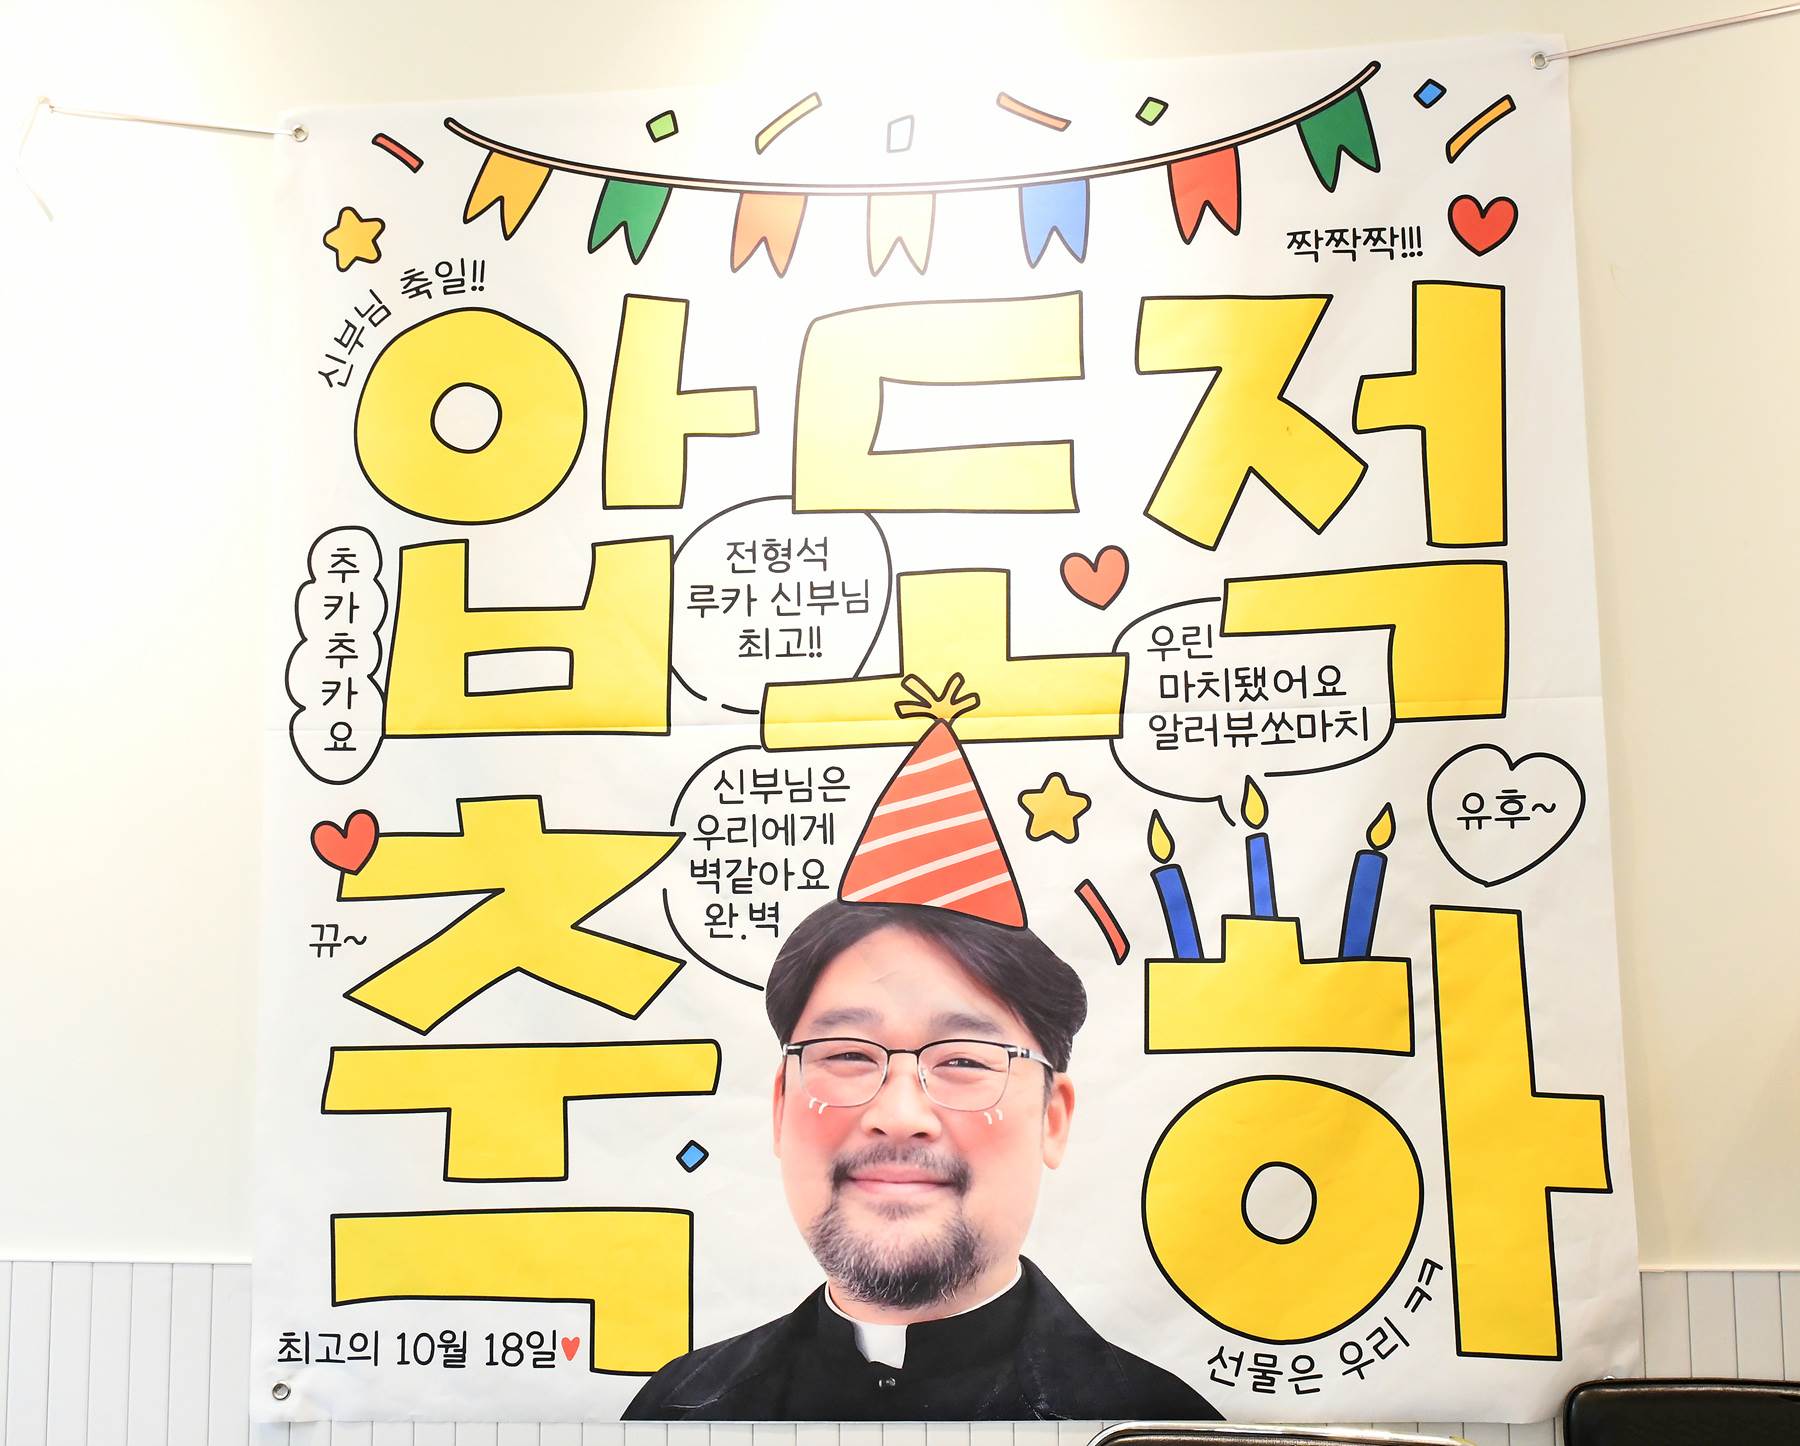 신부님 축일!!
짝짝짝!!!
압도적
추카추카요
전형석
루카 신부님
최고!!
우린
마치됐어요
알러뷰쏘마치
신부님은
우리에게
벽같아요
완.벽
유후~
축하
뀨~
최고의 10월 18일♥
선물은 우리 ㅋㅋ